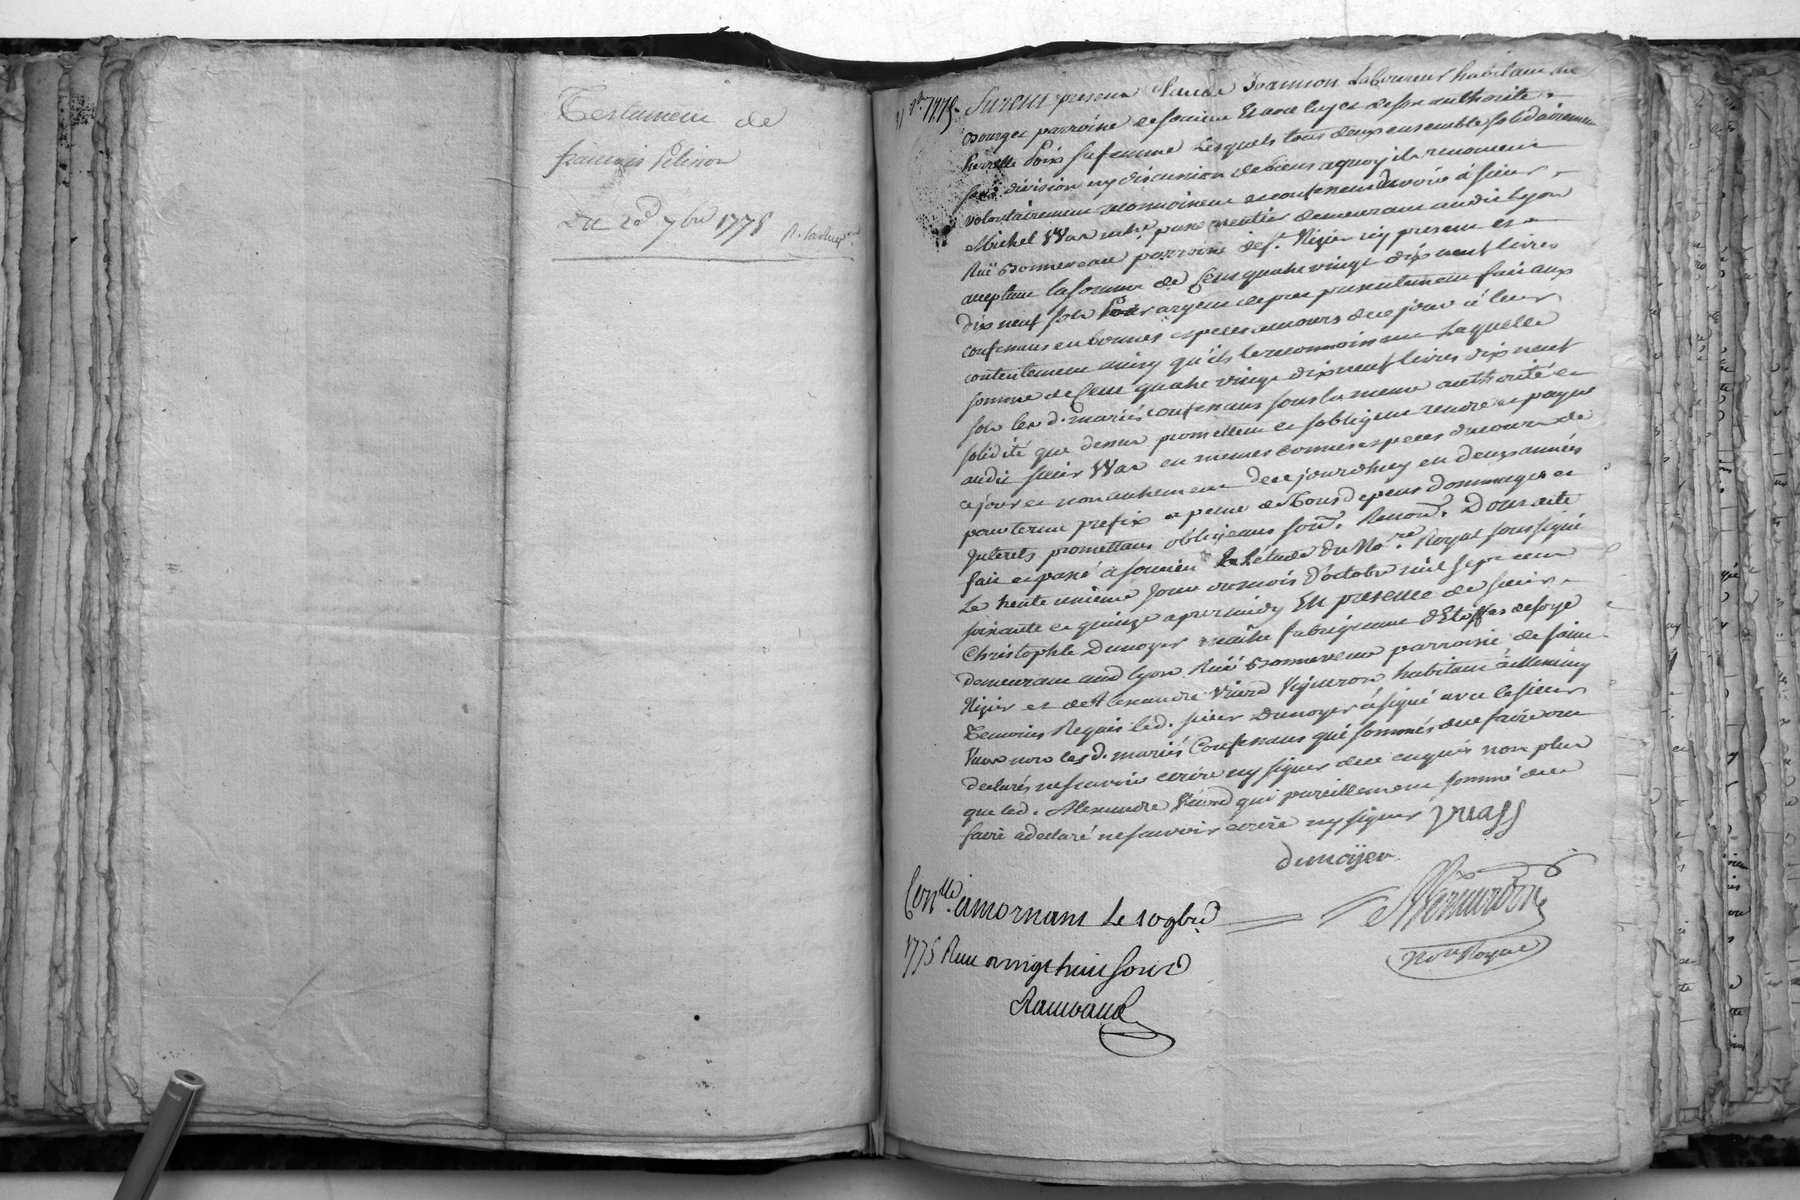 Testament de
francois Pelisson
Du 20e 7bre 1775
1775. Furent presens Claude Joannon Laboureur habitant au
Bourget parroisse de soucieu Et avec luy et de son authorité
pierrette Poix sa femme Lesquels tous deux ensemble solidairement
sans division ny discussion de biens a quoy ils renoncent
volontairement reconnoissent et confessent devoir à sieur
Michel rentier demeurant audit Lyon
Ruë Bonneveau parroisse de St. Nizier icy present et
acceptant la somme de Cent quatre vingt dix neuf livres
dix neuf sols argent de pret presentement fait aux
confessans en bonnes especes au cours de ce jour à leur
contentement ainsy qu'ils le reconnoissent Laquelle
somme de Cent quatre vingt dix neuf livres dix neuf
sols les d. mariés confessans sous la meme authorité et
solidité que dessus promettent et sobligent rendre et payer
audit sieur en memes bonnes especes du cours de
ce jour et non autrement de ce jourdhuy en deux années
pour terme prefix a peine de tous depens dommages et
Jnterets promettans obligeans soum. Renon. Dont acte
fait et passé a soucieu En l'étude du No.re Royal soussigné
Le trente unieme Jour du mois D'octobre mil sept cent
soixante et quinze apres midy En presence de sieur
Christophle Dunoyer maître fabriquant d'Etoffes de soye
demeurant aud Lyon Ruë Bonneveau parroisse de saint
Nizier et de Alexandre Viard Vigneron habitant à Messimy
Temoins Requis led. sieur Dunoyer à signé avec le sieur
non les d. mariés Confessans qui sommés de ce faire ont
declarés ne scavoir ecrire ny signer de ce enquis non plus
que led. Alexandre Viard qui pareillement sommé de ce
faire a declaré ne scavoir ecrire ny signer
dunoyer
Con.lle a mornant Le 10 9bre
1775 Reçu vingt huit sous
Raimbaud
No.re Royal